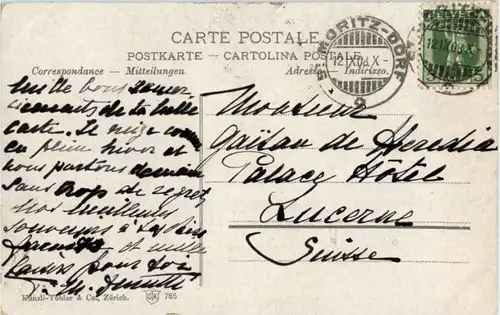 CARTE POSTALE
POSTKARTE – CARTOLINA POSTALE
Correspondance – Mitteilungen.
Adresse – Indirizzo.
ST. MORITZ-DORF
12.IX.08.X-
5
de bons
de ta belle
carte. Il neige comme
en plein hiver et
nous partons demain
sans trop de regret
Nos meilleurs
souvenirs à
et mille
pour toi
Monsieur
Gaëtan de Heredia
Palace Hôtel
Lucerne
Suisse
Künzli-Tobler & Co., Zürich.
785